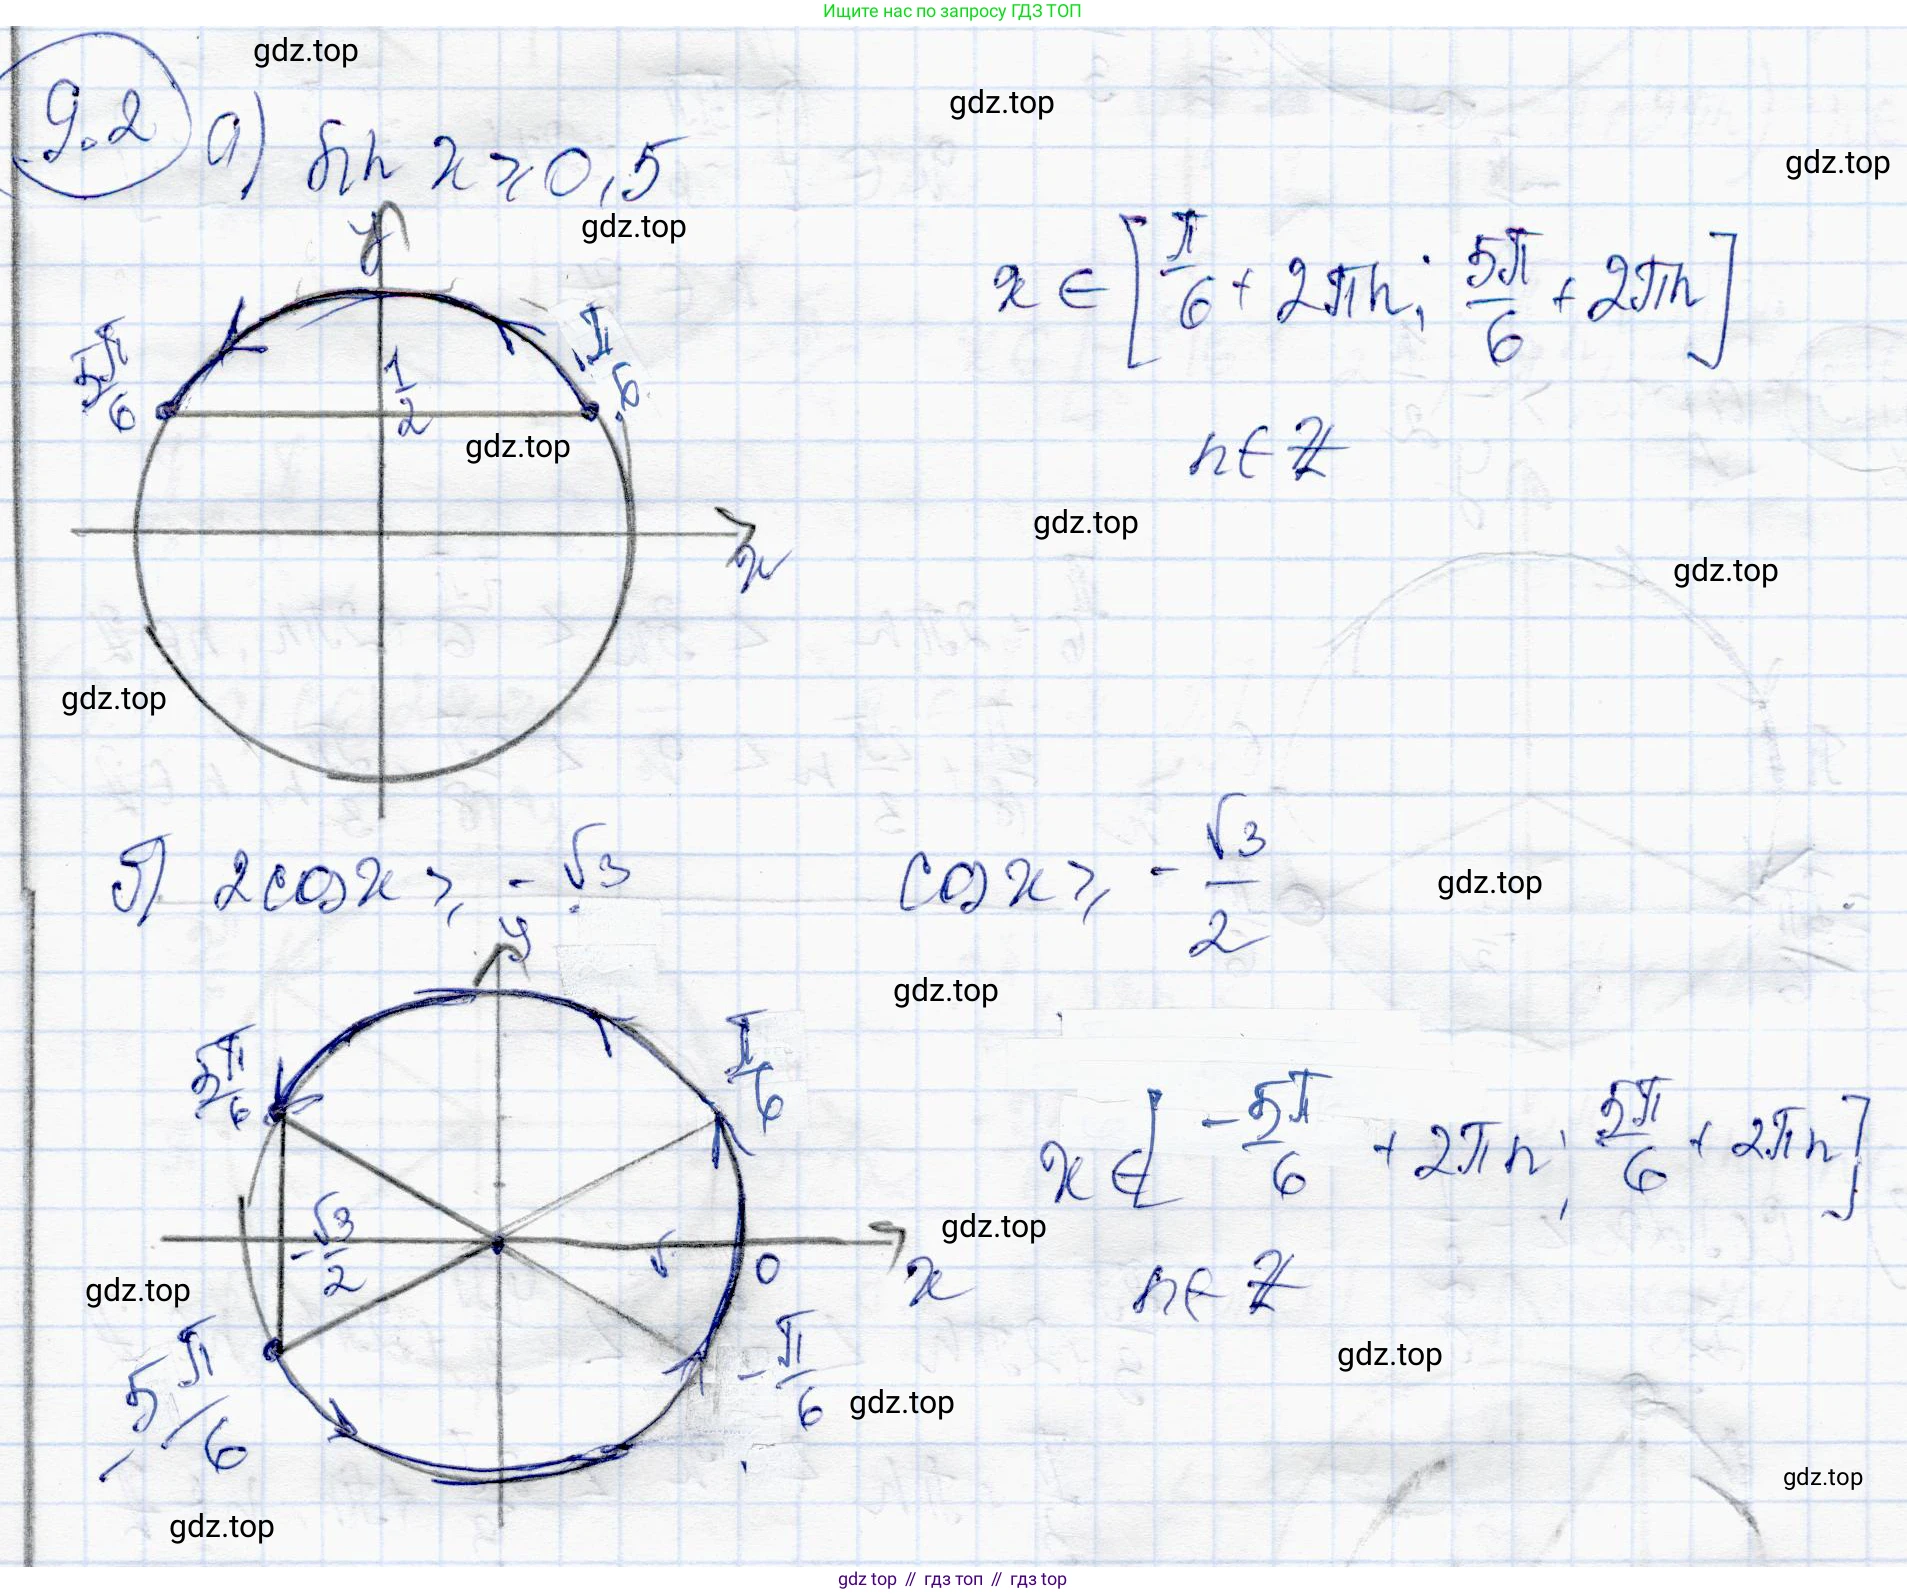 Ищите нас по запросу ГДЗ ТОП
gdz.top
gdz.top
gdz.top
9.2 а) sin x ⩾ 0,5
gdz.top
y
x ∈ [π/6 + 2πn; 5π/6 + 2πn]
5π/6
1/2
π/6
gdz.top
n ∈ ℤ
gdz.top
x
gdz.top
gdz.top
б) 2cos x ⩾ -√3
cos x ⩾ -√3/2
gdz.top
y
gdz.top
5π/6
π/6
x ∈ [-5π/6 + 2πn; 5π/6 + 2πn]
-√3/2
0
x
gdz.top
n ∈ ℤ
gdz.top
-5π/6
-π/6
gdz.top
gdz.top
gdz.top
gdz.top
gdz top // гдз топ // гдз top